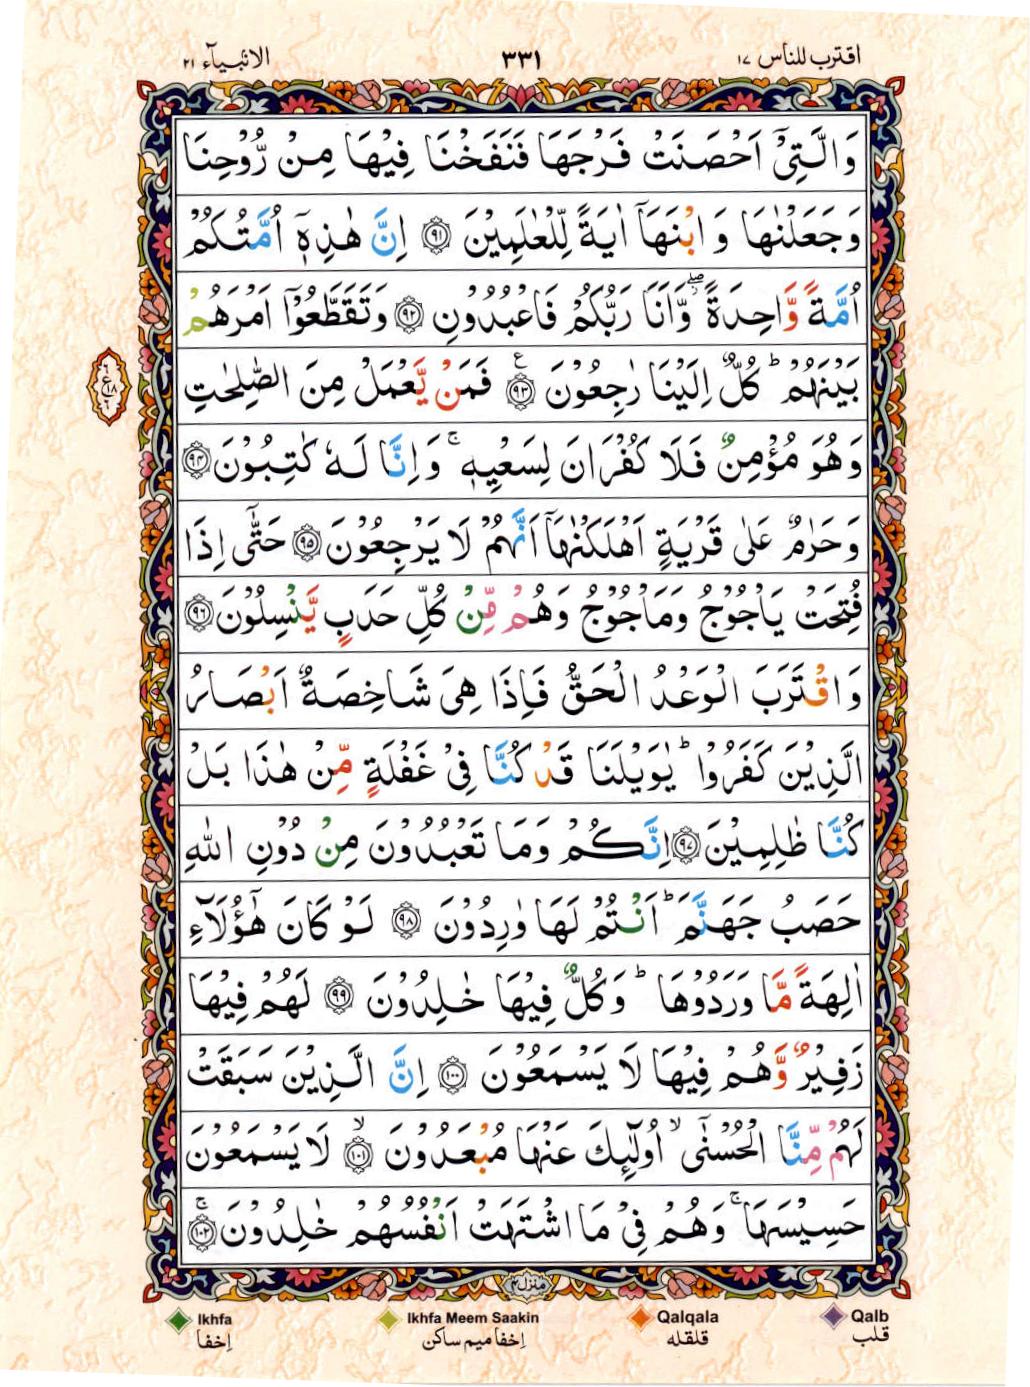 اقترب للناس ١٧ ٣٣١ الانبیآء ٢١
وَالَّتِیْۤ اَحْصَنَتْ فَرْجَهَا فَنَفَخْنَا فِیْهَا مِنْ رُّوْحِنَا
وَجَعَلْنٰهَا وَابْنَهَاۤ اٰیَةً لِّلْعٰلَمِیْنَ ﴿٩١﴾ اِنَّ هٰذِهٖۤ اُمَّتُكُمْ
اُمَّةً وَّاحِدَةً ۖؗ وَّاَنَا رَبُّكُمْ فَاعْبُدُوْنِ ﴿٩٢﴾ وَتَقَطَّعُوْۤا اَمْرَهُمْ
بَیْنَهُمْ ؕ كُلٌّ اِلَیْنَا رٰجِعُوْنَ ﴿٩٣﴾ ع فَمَنْ یَّعْمَلْ مِنَ الصّٰلِحٰتِ
٦ ع ١٨ ٦
وَهُوَ مُؤْمِنٌ فَلَا كُفْرَانَ لِسَعْیِهٖ ۚ وَاِنَّا لَهٗ كٰتِبُوْنَ ﴿٩٤﴾
وَحَرٰمٌ عَلٰی قَرْیَةٍ اَهْلَكْنٰهَاۤ اَنَّهُمْ لَا یَرْجِعُوْنَ ﴿٩٥﴾ حَتّٰۤی اِذَا
فُتِحَتْ یَاْجُوْجُ وَمَاْجُوْجُ وَهُمْ مِّنْ كُلِّ حَدَبٍ یَّنْسِلُوْنَ ﴿٩٦﴾
وَاقْتَرَبَ الْوَعْدُ الْحَقُّ فَاِذَا هِیَ شَاخِصَةٌ اَبْصَارُ
الَّذِیْنَ كَفَرُوْا ؕ یٰوَیْلَنَا قَدْ كُنَّا فِیْ غَفْلَةٍ مِّنْ هٰذَا بَلْ
كُنَّا ظٰلِمِیْنَ ﴿٩٧﴾ اِنَّكُمْ وَمَا تَعْبُدُوْنَ مِنْ دُوْنِ اللّٰهِ
حَصَبُ جَهَنَّمَ ؕ اَنْتُمْ لَهَا وٰرِدُوْنَ ﴿٩٨﴾ لَوْ كَانَ هٰۤؤُلَآءِ
اٰلِهَةً مَّا وَرَدُوْهَا ؕ وَكُلٌّ فِیْهَا خٰلِدُوْنَ ﴿٩٩﴾ لَهُمْ فِیْهَا
زَفِیْرٌ وَّهُمْ فِیْهَا لَا یَسْمَعُوْنَ ﴿١٠٠﴾ اِنَّ الَّذِیْنَ سَبَقَتْ
لَهُمْ مِّنَّا الْحُسْنٰۤی ۙ اُولٰٓىِٕكَ عَنْهَا مُبْعَدُوْنَ ﴿١٠١﴾ۙ لَا یَسْمَعُوْنَ
حَسِیْسَهَا ۚ وَهُمْ فِیْ مَا اشْتَهَتْ اَنْفُسُهُمْ خٰلِدُوْنَ ﴿١٠٢﴾ۚ
منزل ٤
Ikhfa Ikhfa Meem Saakin Qalqala Qalb
اِخفا اِخفا میم ساکن قلقله قلب